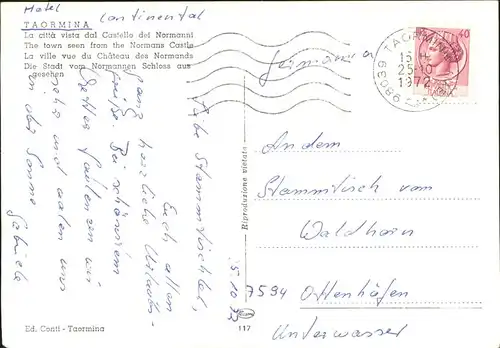 Hotel Continental
TAORMINA
La città vista dal Castello dei Normanni
The town seen from the Normans Castle
La ville vue du Château des Normands
Die Stadt vom Normannen Schloss aus
gesehen
Germania
98039 TAORMINA
15-
25.10
1972
40
Liebe Stammtischler,
Euch allen
herzliche Urlaubs-
grüße. Bei schönem
Wetter faulenzen wir
sehr und aalen uns
in der Sonne
Gabriele
25.10.72
Riproduzione vietata
An dem
Stammtisch vom
Waldhorn
7594 Ottenhöfen
Unterwasser
Ed. Conti - Taormina
117